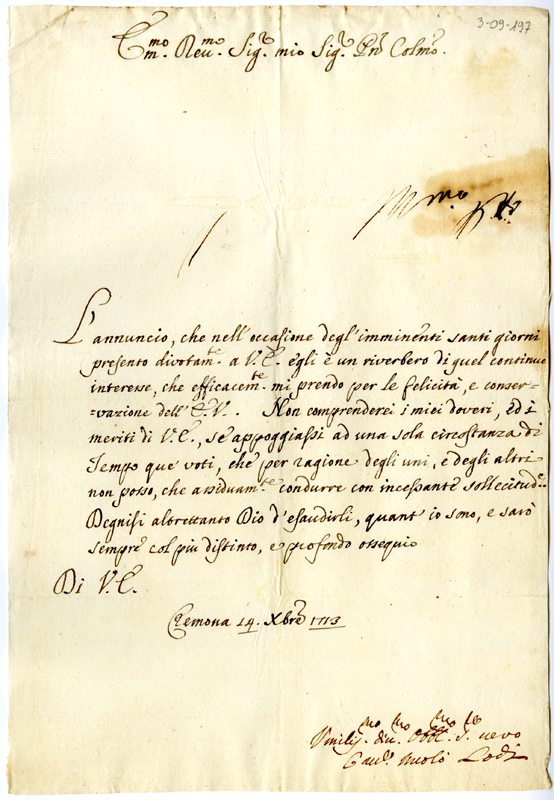 3-09-197
Em.mo Reu.mo Sig.r mio Sig.r Pn̄ Colmo.
L'annuncio, che nell'occasione degl'imminenti santi giorni
presento divotam.te a V.E. egli è un riverbero di quel continuo
interesse, che efficacem.te mi prendo per le felicità, e conser=
=vazione dell'E.V. Non comprenderei i miei doveri, ed i
meriti di V.E., se appoggiassi ad una sola circostanza di
Tempo que' voti, che per ragione degli uni, e degli altri
non posso, che assiduam.te condurre con incessante sollecitud.e
Degnisi altrettanto Dio d'esaudirli, quant'io sono, e sarò
sempre col più distinto, e profondo ossequio
Di V.E.
Cremona 14. Xbre 1713
Vmilis.mo diu.mo Obbl.mo S. uero
Lodi